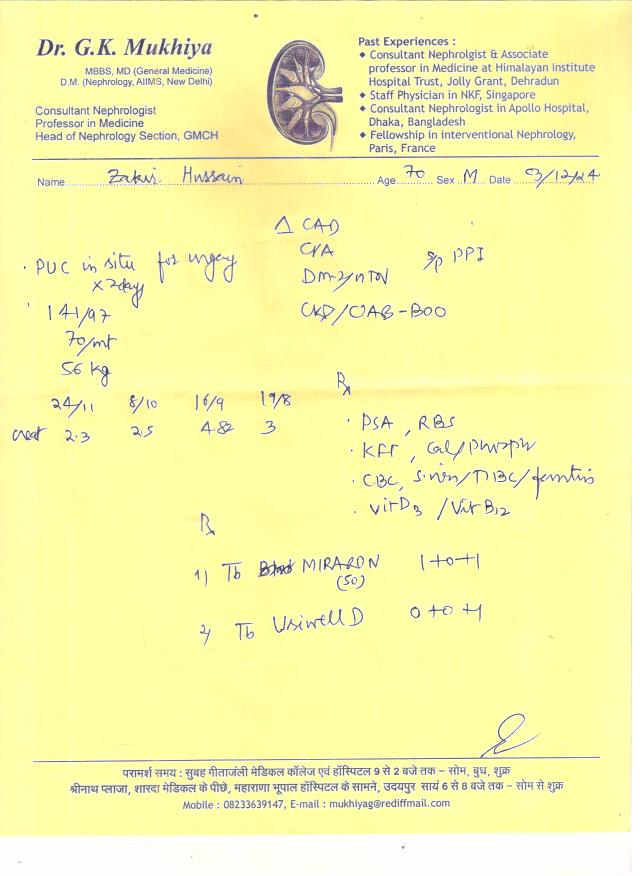 Dr. G.K. Mukhiya
MBBS, MD (General Medicine)
D.M. (Nephrology, AIIMS, New Delhi)
Consultant Nephrologist
Professor in Medicine
Head of Nephrology Section, GMCH
Past Experiences :
◆ Consultant Nephrolgist & Associate
professor in Medicine at Himalayan Institute
Hospital Trust, Jolly Grant, Dehradun
◆ Staff Physician in NKF, Singapore
◆ Consultant Nephrologist in Apollo Hospital,
Dhaka, Bangladesh
◆ Fellowship in interventional Nephrology,
Paris, France
Name Zakir Hussain Age 70 Sex M Date 3/12/24
Δ CAD
CVA
DM-2/HTN
S/P PPI
CKD/OAB-BOO
· PUC in situ for urgency
x 2day
141/97
70/mt
56 kg
24/11 8/10 16/9 19/8
creat 2.3 2.5 4.82 3
Rx
· PSA, RBS
· KFT, Cal/Phosph
· CBC, S.iron/TIBC/ferritin
· Vit D3 / Vit B12
Rx
1) Tb MIRARDN 1+0+1
(50)
2) Tb Usiwell D 0+0+1
परामर्श समय : सुबह गीताजंली मेडिकल कॉलेज एवं हॉस्पिटल 9 से 2 बजे तक – सोम, बुध, शुक्र
श्रीनाथ प्लाजा, शारदा मेडिकल के पीछे, महाराणा भूपाल हॉस्पिटल के सामने, उदयपुर सायं 6 से 8 बजे तक – सोम से शुक्र
Mobile : 08233639147, E-mail : mukhiyag@rediffmail.com